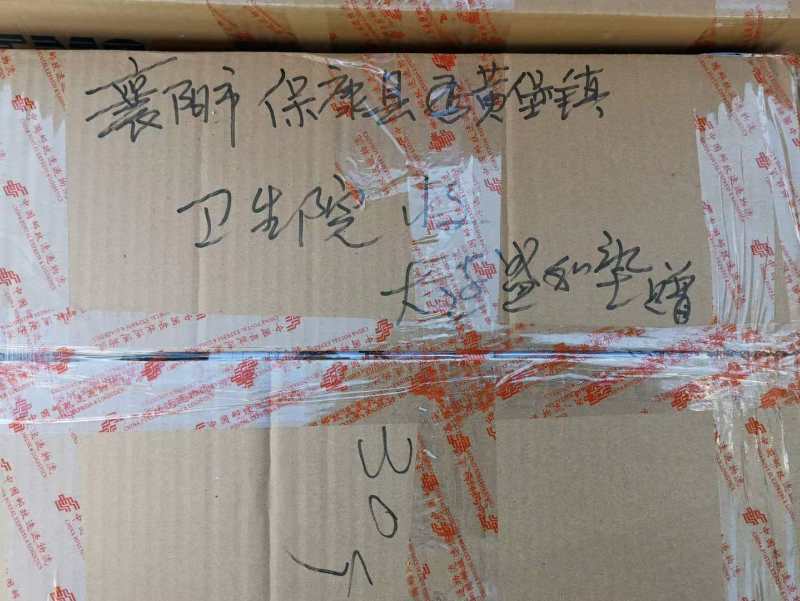 襄阳市 保康县 黄堡镇
卫生院 收
大连盛和塾赠
30个
中国邮政速递物流
CHINA POSTAL EXPRESS & LOGISTICS